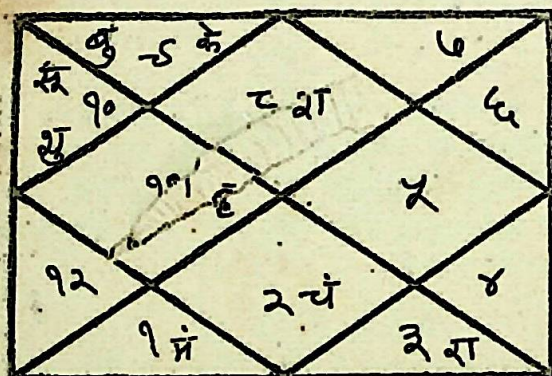 बु ९ के
७
सू
१०
शु
८ श
६
११
५
१२
२ चं
४
१ मं
३ रा